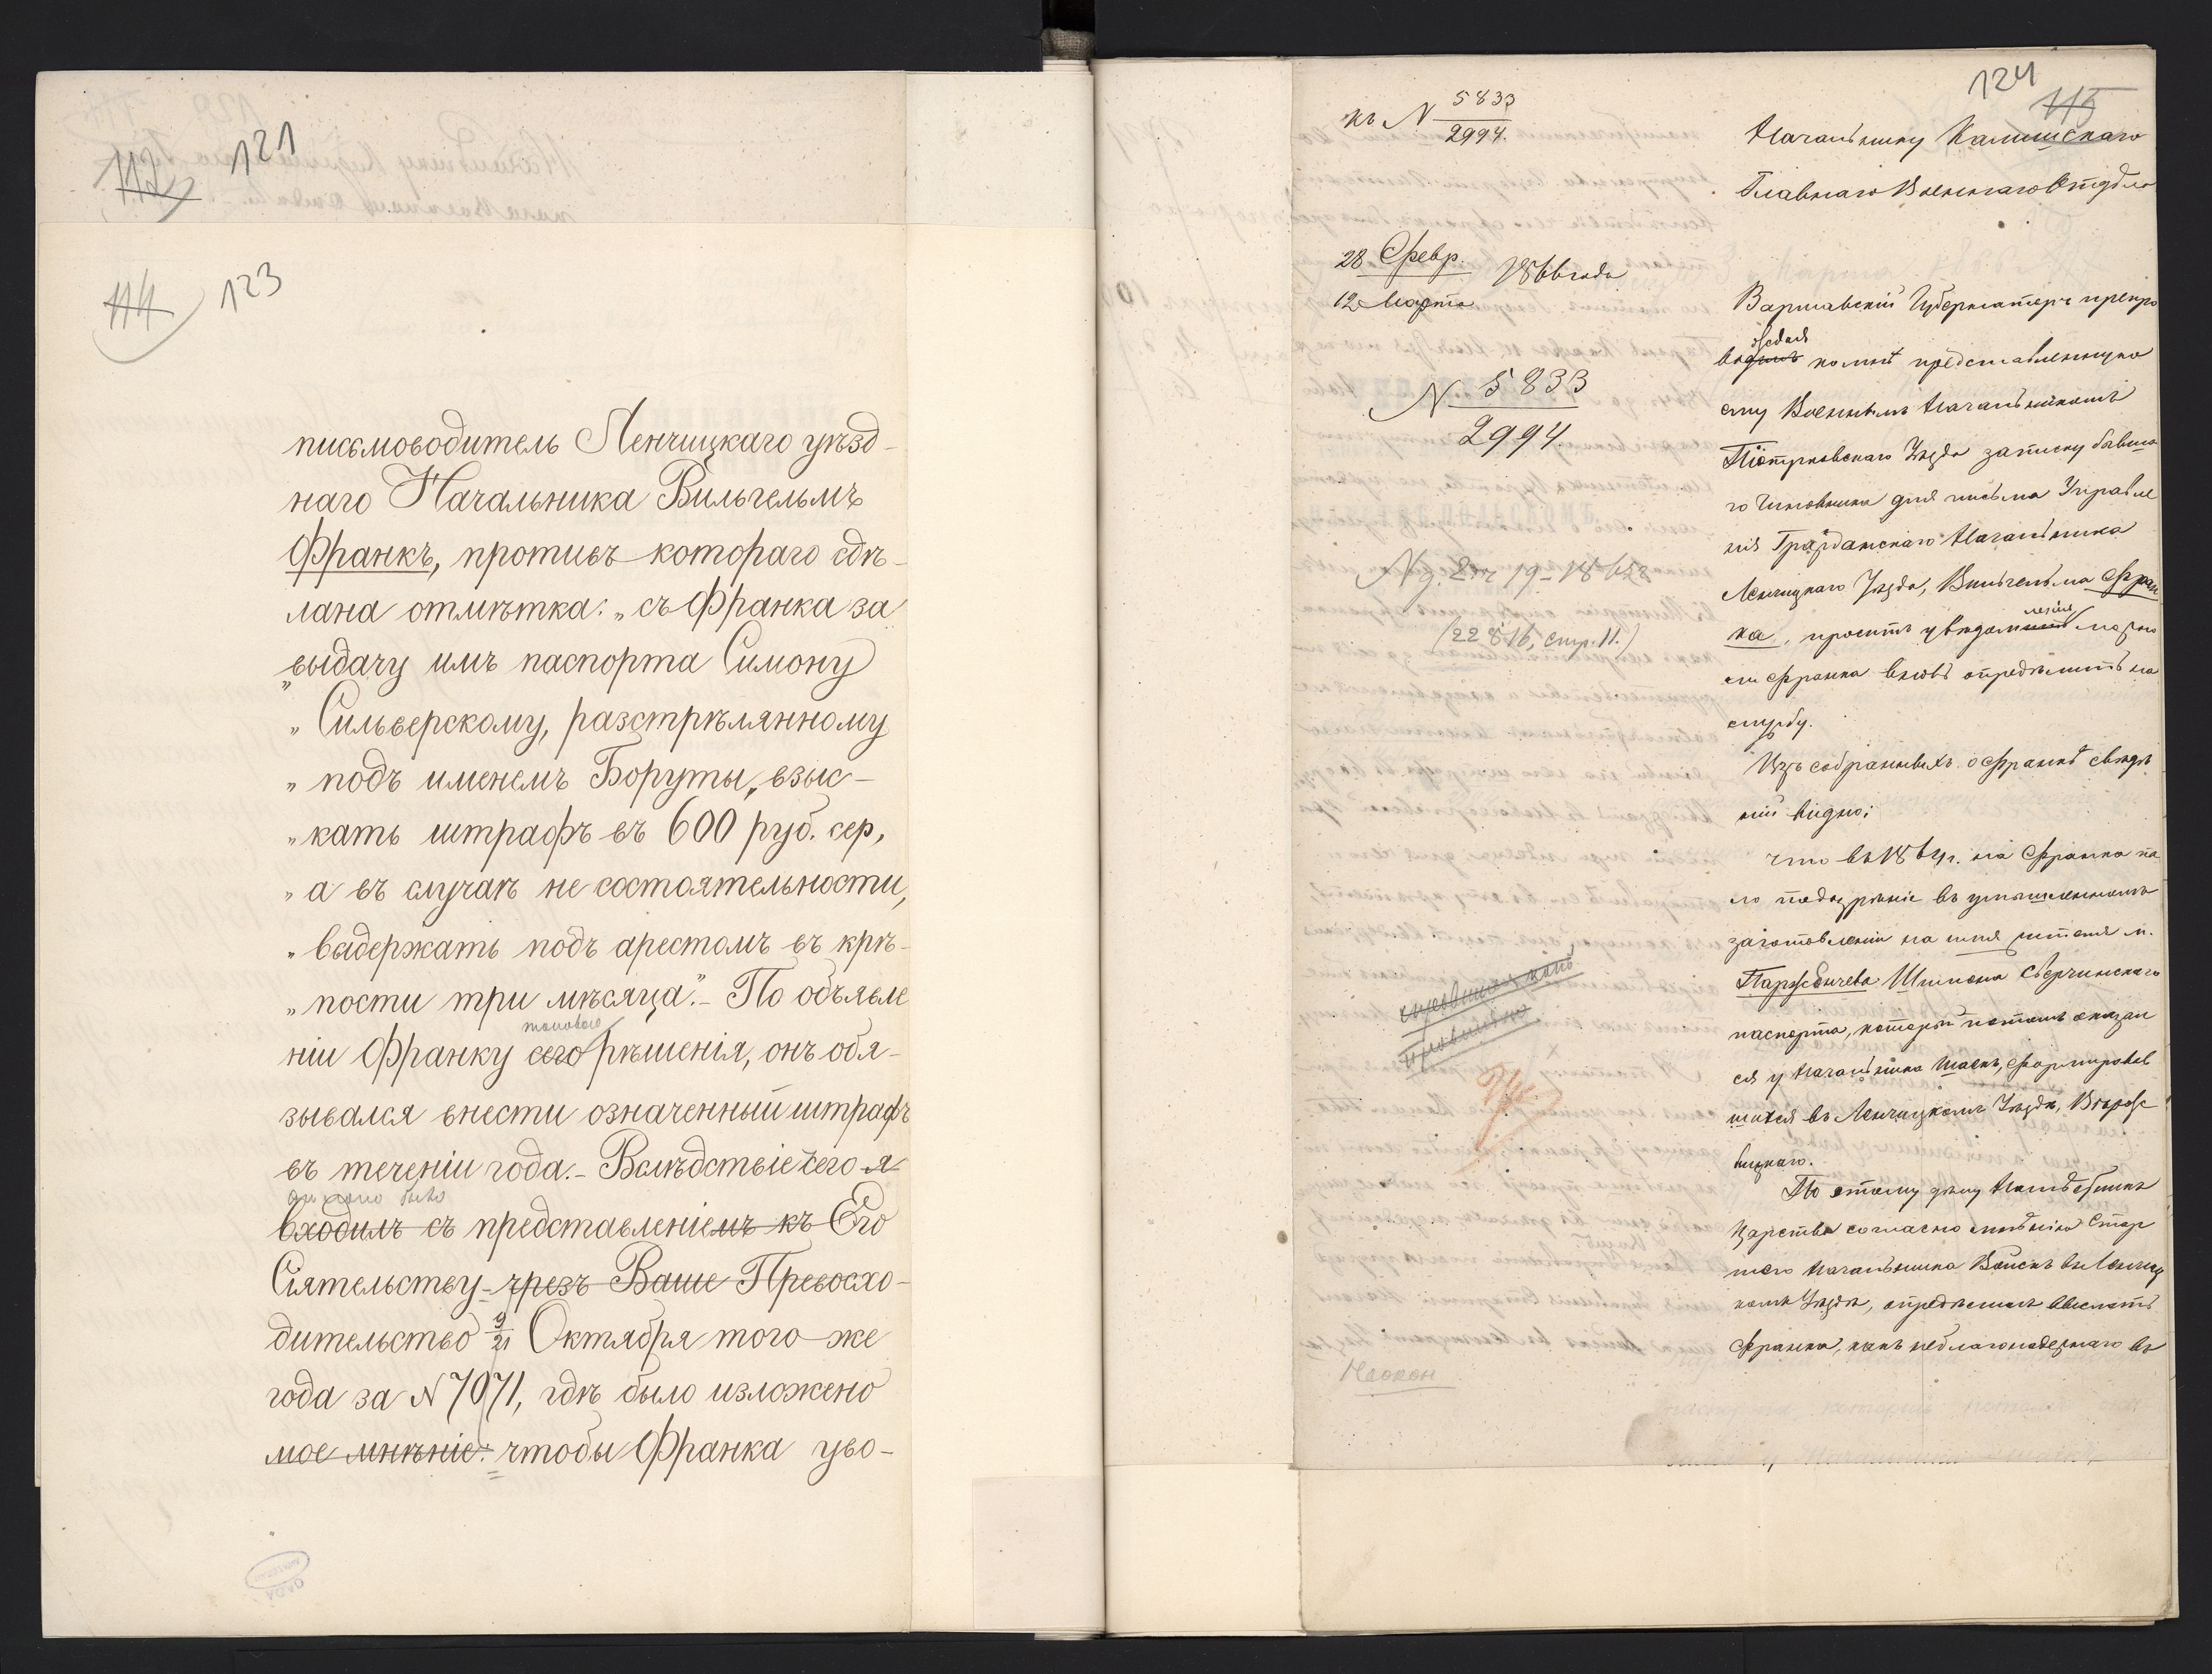 112 121
114 123
письмоводитель Ленчицкаго уѣзд-
наго Начальника Вильгельмъ
Франкъ, противъ котораго сдѣ-
лана отмѣтка: „съ Франка за
„выдачу имъ паспорта Симону
„Сильверскому, разстрѣлянному
„подъ именемъ Боруты, взыс-
„кать штрафъ въ 600 руб. сер,
„а въ случаѣ не состоятельности,
„выдержать подъ арестомъ въ крѣ-
„пости три мѣсяца.“- По объявле
таковаго
ніи Франку сего рѣшенія, онъ обя-
зывался внести означенный штрафъ
въ теченіи года.- Вслѣдствіе чего я
было
входилъ съ представленіемъ къ Его
Сіятельству чрезъ Ваше Превосхо-
дительство 9/21 Октября того же
года за N 7071, гдѣ было изложено
мое мнѣніе: чтобы Франка уво-
124
115
къ N 5833
2994.
Начальнику Калишскаго
Главнаго Военнаго Отдѣла
28 Февр.
12 Марта 1866 года
N 5833
2994
(22816, стр. 11.)
Варшавскій Губернаторъ препро
вождая ко мнѣ представленную
ему Военнымъ Начальникомъ
Піотрковскаго Уѣзда записку бывша
го Чиновника для письма Управле
нія Гражданскаго Начальника
Ленчицкаго Уѣзда, Вильгельма Фран
ка, проситъ увѣдомленія можно
ли Франка вновь опредѣлить на
службу.
Изъ собранныхъ о Франкѣ свѣдѣ
ній видно:
что въ 1864 г. на Франка па
ло подозрѣніе въ умышленномъ
заготовленіи на имя жителя м.
Паржэнчева Шимона Сверчинскаго
паспорта, который потомъ оказал
ся у Начальника шаекъ, формировав
шихся въ Ленчицкомъ Уѣздѣ,
вицкаго.
По этому дѣлу Намѣстникъ
Царства согласно мнѣнію Стар
шаго Начальника Войскъ въ Ленчиц
комъ Уѣздѣ, опредѣлилъ выслать
Франка, какъ неблагонадежнаго въ